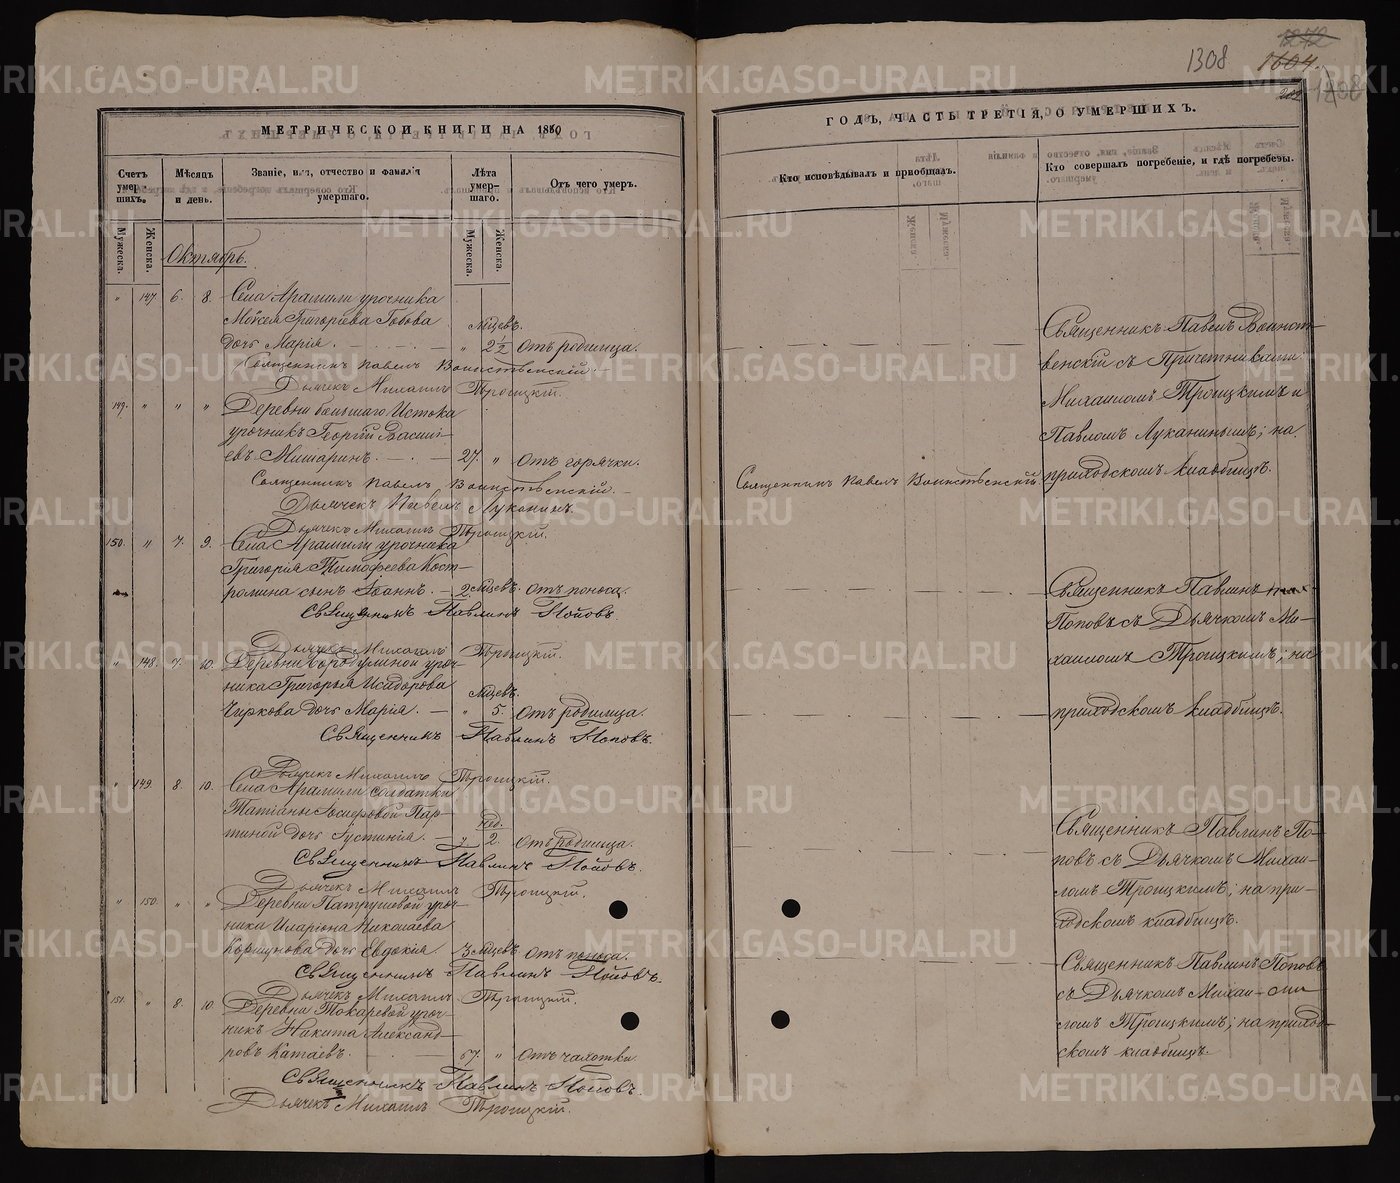 1272
1308
1604.
1308
202
МЕТРИЧЕСКОЙ КНИГИ НА 1880
ГОДЪ, ЧАСТЬ ТРЕТІЯ, О УМЕРШИХЪ.
Счетъ умершихъ.
Мѣсяцъ и день.
Званіе, имя, отчество и фамилія умершаго.
Лѣта умершаго.
Отъ чего умеръ.
Кто исповѣдывалъ и пріобщалъ.
Кто совершалъ погребеніе, и гдѣ погребены.
Мужеска.
Женска.
Мужеска.
Женска.
Октябрь.
" 147. 6. 8. Села Арамили урочника
Моѵсея Григоріева
дочь Марія. мѣсяцевъ. " 2 1/2 Отъ родимца.
Священникъ Павелъ Воинственскій.
Дьячекъ Михаилъ Троицкій.
Священникъ Павелъ Воинст-
венскій съ Причетниками
Михаиломъ Троицкимъ и
Павломъ Луканинымъ; на
приходскомъ кладбищѣ.
149. " " " Деревни большаго Истока
урочникъ Георгій Василі-
евъ Мишаринъ. 27. " Отъ горячки.
Священникъ Павелъ Воинственскій.
Дьячекъ Павелъ Луканинъ.
Дьячекъ Михаилъ Троицкій.
Священникъ Павелъ Воинственскій
150. " 7. 9. Села Арамили урочника
Григорія Тимофеева Кост-
ромина сынъ Іоаннъ. 2 мѣсяцевъ. Отъ поноса.
Священникъ Павлинъ Поповъ.
Дьячекъ Михаилъ Троицкій.
Священникъ Павлинъ
Поповъ съ Дьячкомъ Ми-
хаиломъ Троицкимъ; на
приходскомъ кладбищѣ.
" 148. 7. 10. Деревни Бородулиной уроч-
ника Григорья Исидорова
Чиркова дочь Марія. мѣсяцевъ. " 5. Отъ родимца.
Священникъ Павлинъ Поповъ.
Дьячекъ Михаилъ Троицкій.
" 149. 8. 10. Села Арамили солдатки
Татіаны Пар-
тиной дочь Іустинія. нед. " 2. Отъ родимца.
Священникъ Павлинъ Поповъ.
Дьячекъ Михаилъ Троицкій.
Священникъ Павлинъ По-
повъ съ Дьячкомъ Михаи-
ломъ Троицкимъ; на при-
ходскомъ кладбищѣ.
" 150. " " Деревни Патрушевой уроч-
ника Иларіона Николаева
Коршунова дочь Евдокія. 3 мѣсяцевъ Отъ поноса.
Священникъ Павлинъ Поповъ.
Дьячекъ Михаилъ Троицкій.
Священникъ Павлинъ Поповъ
съ Дьячкомъ Михаи-
ломъ Троицкимъ; на приход-
скомъ кладбищѣ.
151. " 8. 10. Деревни Токаревой уроч-
никъ Никита Александ-
ровъ Катаевъ. 67. " Отъ чахотки.
Священникъ Павлинъ Поповъ.
Дьячекъ Михаилъ Троицкій.
METRIKI.GASO-URAL.RU